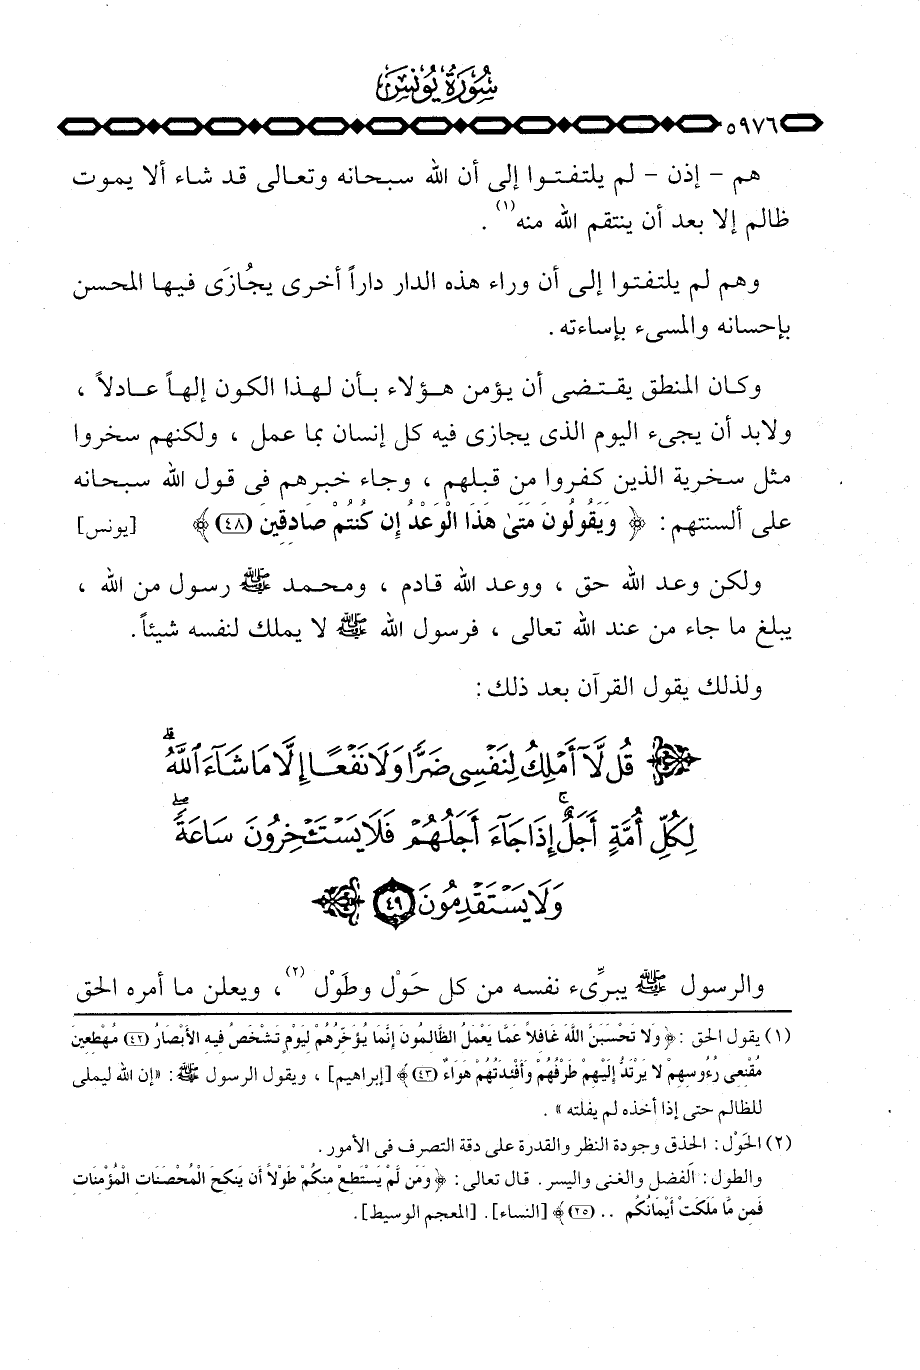 سُورَةُ يُونُسَ
٥٩٧٦
هم – إذن – لم يلتفتـوا إلى أن الله سبحانه وتعالى قد شاء ألا يموت
ظالم إلا بعد أن ينتقم الله منه(١) .
وهم لم يلتفتوا إلى أن وراء هذه الدار داراً أخرى يجُازَى فيـها المحسن
بإحسانه والمسىء بإساءته .
وكـان المنطق يقـتـضى أن يؤمن هـؤلاء بـأن لـهـذا الكون إلهـاً عـادلاً ،
ولابد أن يجىء اليوم الذى يجازى فيه كل إنسان بما عمل ، ولكنهم سخروا
مثل سـخرية الذين كـفروا من قبلهم ، وجاء خبرهم فى قول الله سـبحانه
على ألسنتهم : ﴿ وَيَقُولُونَ مَتَىٰ هَٰذَا الْوَعْدُ إِن كُنتُمْ صَادِقِينَ (٤٨) ﴾ [يونس]
ولكن وعد الله حق ، ووعد الله قادم ، ومحـمد ﷺ رسول من الله ،
يبلغ ما جاء من عند الله تعالى ، فرسول الله ﷺ لا يملك لنفسه شيئاً .
ولذلك يقول القرآن بعد ذلك :
قُل لَّآ أَمْلِكُ لِنَفْسِى ضَرًّا وَلَا نَفْعًا إِلَّا مَا شَآءَ ٱللَّهُ ۗ
لِكُلِّ أُمَّةٍ أَجَلٌ ۚ إِذَا جَآءَ أَجَلُهُمْ فَلَا يَسْتَـْٔخِرُونَ سَاعَةً ۖ
وَلَا يَسْتَقْدِمُونَ ٤٩
والرسول ﷺ يبرِّىء نفسه من كل حَوْل وطَوْل (٢) ، ويعلن ما أمره الحق
(١) يقول الحق : ﴿ وَلا تَحْسَبَنَّ اللَّهَ غَافِلاً عَمَّا يَعْمَلُ الظَّالِمُونَ إِنَّمَا يُؤَخِّرُهُمْ لِيَوْمٍ تَشْخَصُ فِيهِ الأَبْصَارُ (٤٢) مُهْطِعِينَ
مُقْنِعِى رُءُوسِهِمْ لا يَرْتَدُّ إِلَيْهِمْ طَرْفُهُمْ وَأَفْئِدَتُهُمْ هَوَاءٌ (٤٣) ﴾ [إبراهيم] ، ويقول الرسول ﷺ : «إن الله ليملى
للظالم حتى إذا أخذه لم يفلته » .
(٢) الحَوْل : الحذق وجودة النظر والقدرة على دقة التصرف فى الأمور .
والطول : الفضل والغنى واليسر . قال تعالى : ﴿ وَمَن لَّمْ يَسْتَطِعْ مِنكُمْ طَوْلاً أَن يَنكِحَ الْمُحْصَنَاتِ الْمُؤْمِنَاتِ
فَمِن مَّا مَلَكَتْ أَيْمَانُكُم .. (٢٥) ﴾ [النساء] . [المعجم الوسيط] .